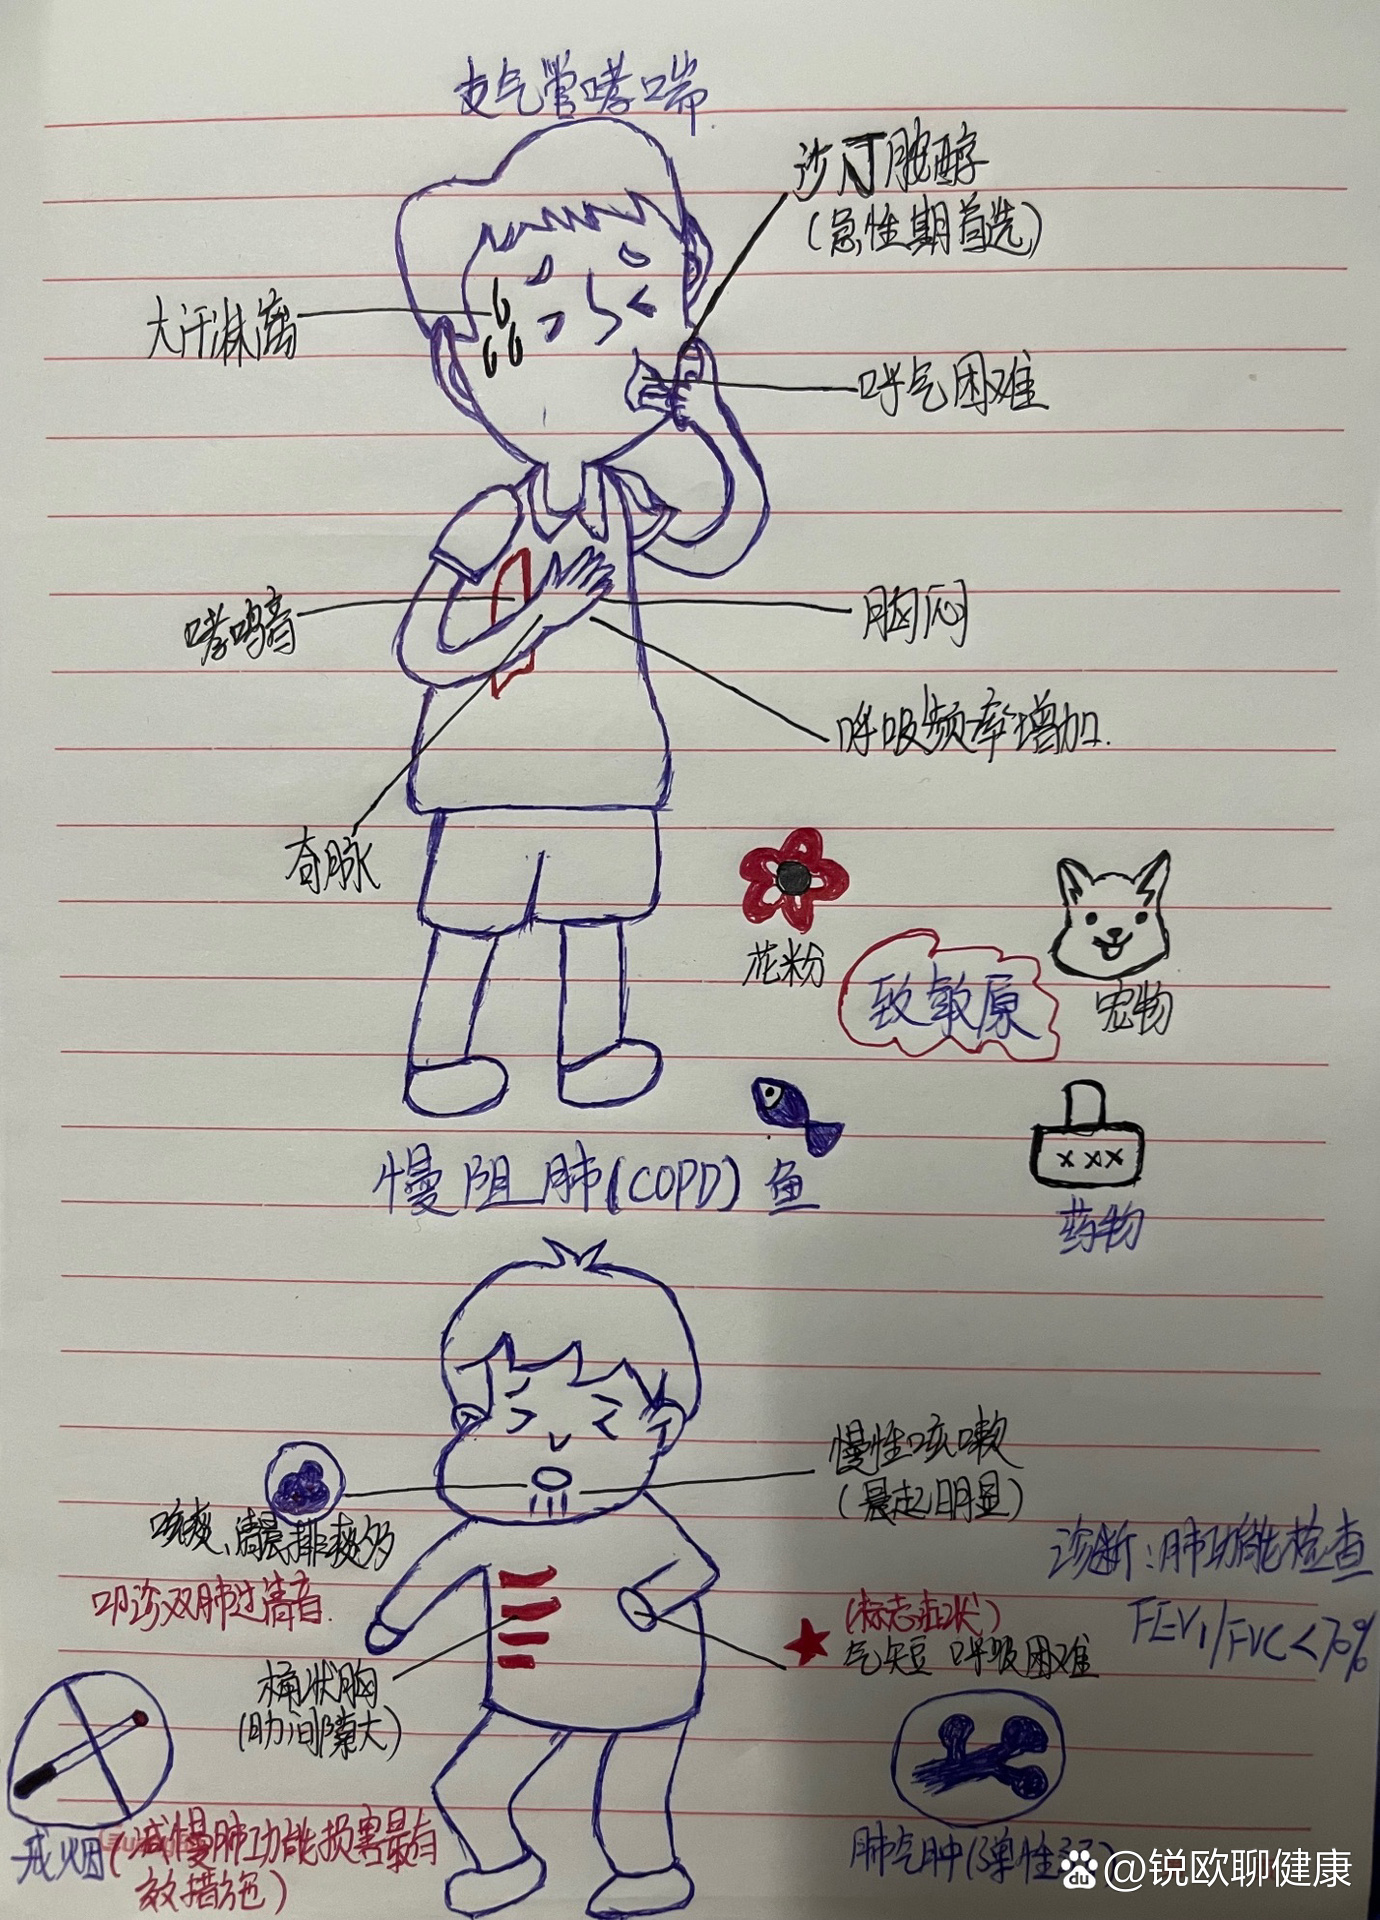 支气管哮喘
沙丁胺醇
(急性期首选)
大汗淋漓
呼气困难
哮鸣音
胸闷
呼吸频率增加.
奇脉
花粉
致敏原
宠物
慢阻肺(COPD)
鱼
xxx
药物
慢性咳嗽
(晨起明显)
咳痰、清晨排痰多
叩诊双肺过清音.
诊断:肺功能检查
FEV1/FVC<70%
(标志症状)
气短 呼吸困难
桶状胸
(肋间隙大)
戒烟(减慢肺功能损害最有
效措施)
肺气肿(弹性
du @锐欧聊健康